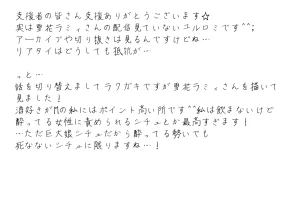 支援者の皆さん支援ありがとうございます☆
実は雪花ラミィさんの配信見ていないユルロミです^^;
アーカイブや切り抜きは見るんですけどね…
リアタイはどうしても抵抗が…
っと…
話を切り替えましてラフガキですが雪花ラミィさんを描いて
見ました!
酒好きがMの私にはポイント高い所です^^私は飲まないけど
酔ってる女性に責められるシチュとか最高すぎます!
…ただ巨大娘シチュだから酔ってる勢いでも
死なないシチュに限りますね…!